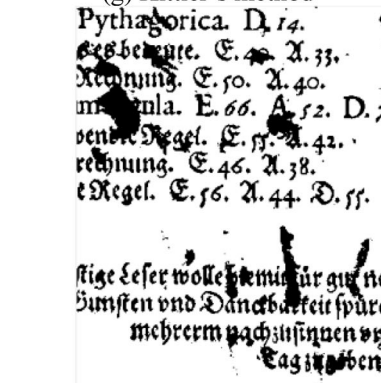 Pythagorica. D. 14.
E. 49. A. 33.
Rechnung. E. 50. A. 40.
E. 66. A. 52. D.
Regel. E. 55. A. 42.
rechnung. E. 46. A. 38.
e Regel. E. 56. A. 44. D. 55.
stige Leser wolle hiemit für gut
Gunsten vnd Danckbarkeit spür
mehrerm nachzusinnen
Tag zugeben